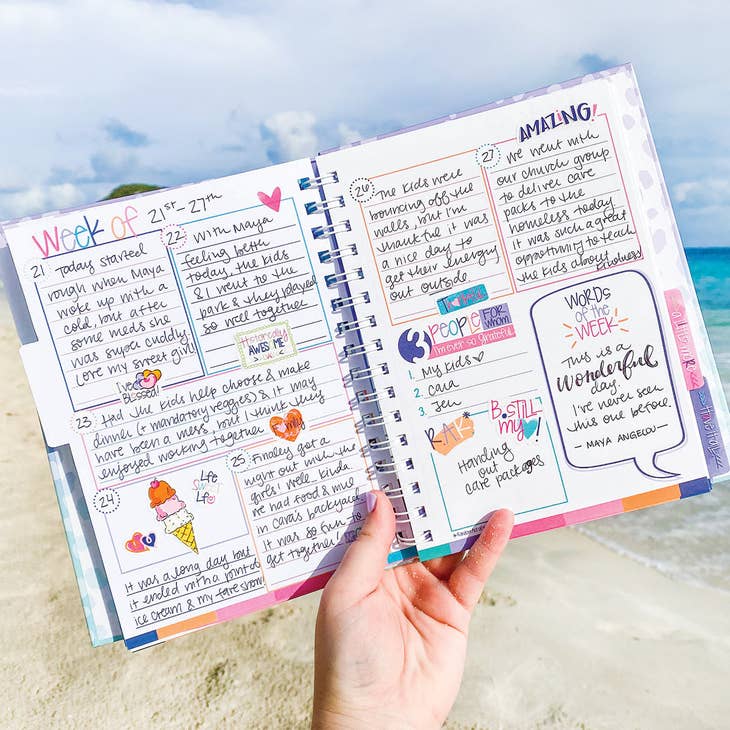 Week of 21st-27th
21
Today started
rough when Maya
woke up with a
cold, but after
some meds she
was super cuddly.
Love my sweet girl!
I feel so
Blessed!
22
With Maya
feeling better
today, the kids
& I went to the
park & they played
so well together
Historically
AWESOME
WEEK
23
Had the kids help choose & make
dinner (+ mandatory veggies) & it may
have been a mess, but I think they
enjoyed working together
Family
24
Life
It was a long day but
it ended with a pint of
ice cream & my fave show
25
Finally got a
night out with the
girls! Well, kinda
we had food & music
in Cara's backyard
it was so fun to
get together!
26
The kids were
bouncing off the
walls, but I'm
thankful it was
a nice day to
get their energy
out outside
Thankful
27
AMAZING!
We went with
our church group
to deliver care
packs to the
homeless today
it was such a great
opportunity to teach
the kids about kindness
3 PEOPLE FOR whom
I'm ever so grateful
1. My kids
2. Cara
3. Jen
RAK*
B-STILL
my
Handing
out
care packages
WORDS
of the
WEEK
This is a
wonderful
day.
I've never seen
this one before.
— MAYA ANGELOU —